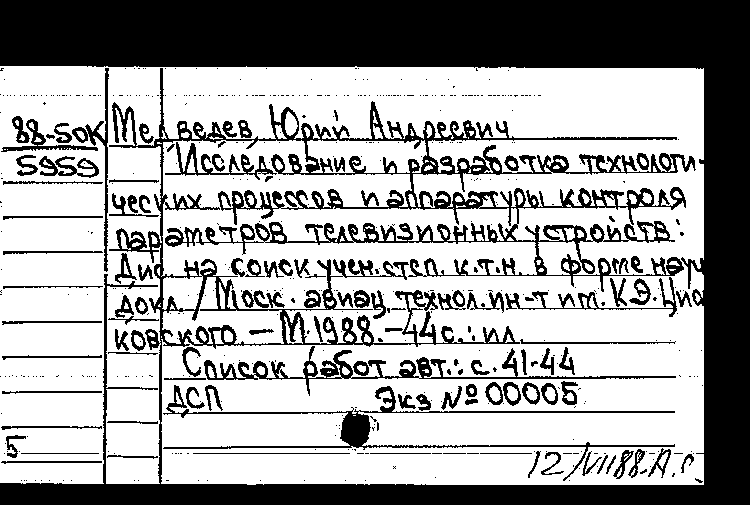 88-50К Медведев, Юрий Андреевич
5959 Исследование и разработка технологи-
ческих процессов и аппаратуры контроля
параметров телевизионных устройств:
Дис. на соиск. учен. степ. к.т.н. в форме науч
докл. / Моск. авиац. технол. ин-т им. К.Э. Цио
ковского. — М. 1988. — 44 с.: ил.
Список работ авт.: с. 41-44
ДСП Экз № 00005
5
12/VII 88. А.С.